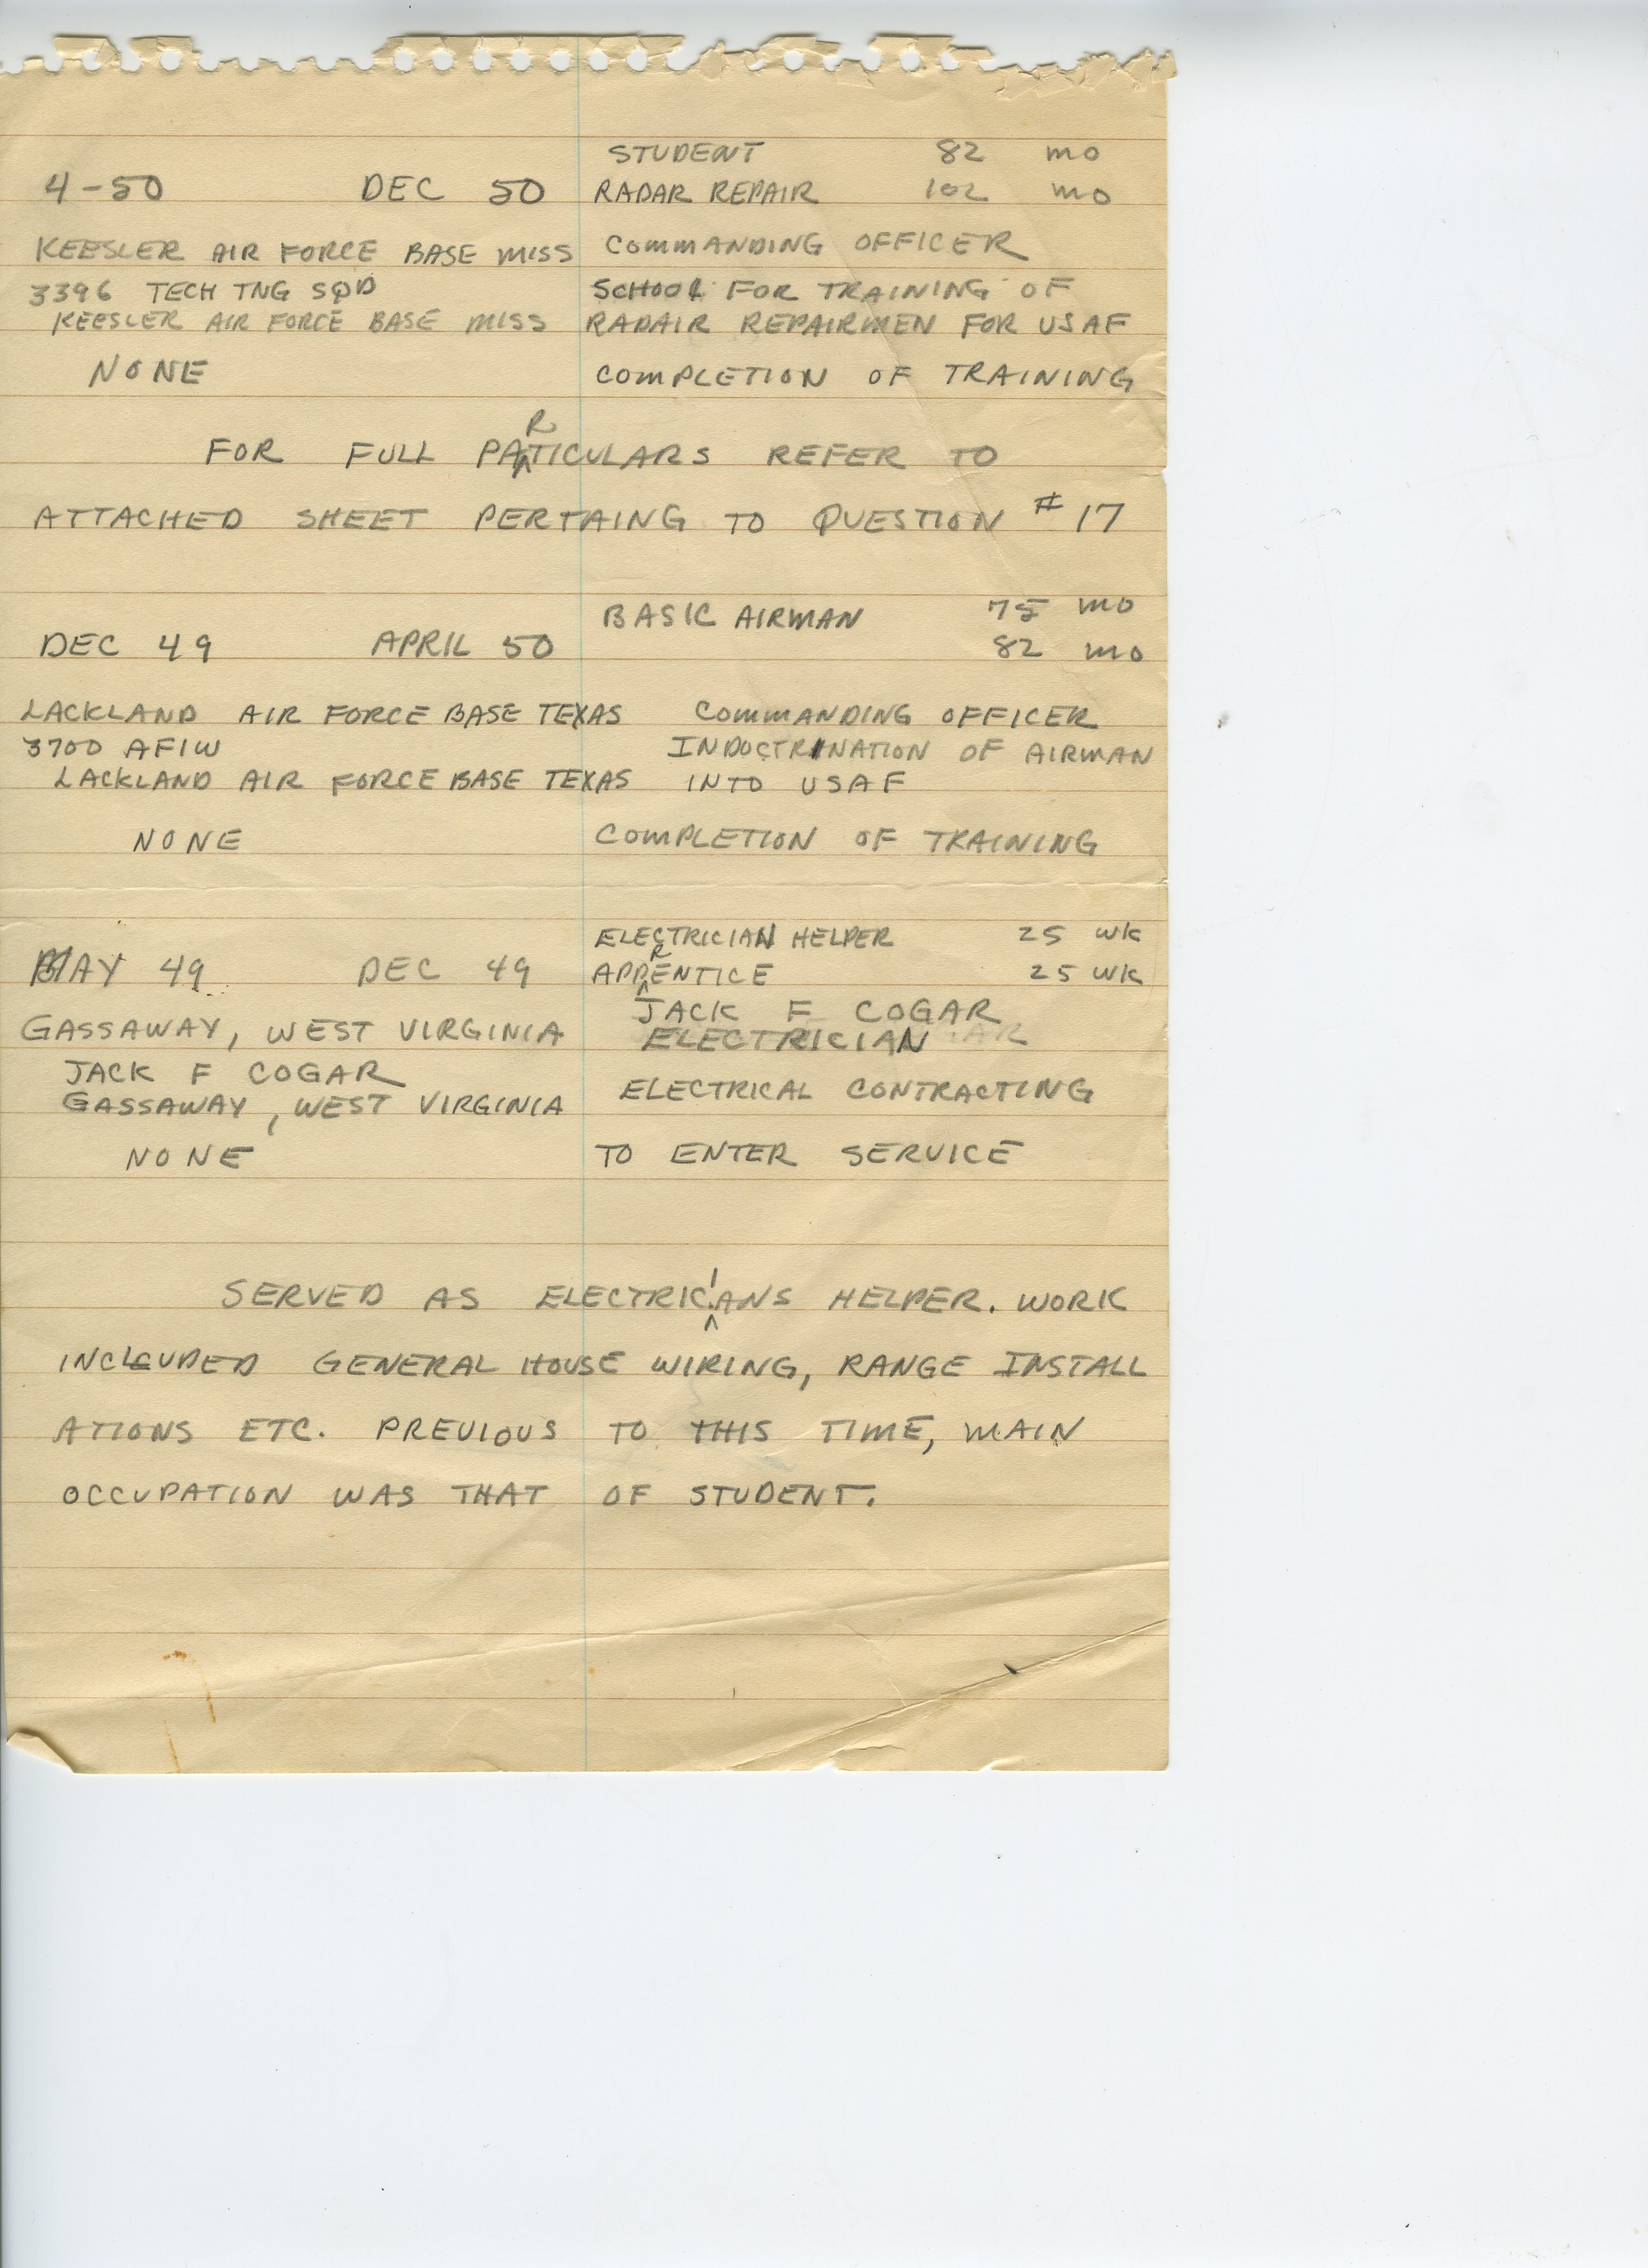 STUDENT 82 mo
4-50 DEC 50 RADAR REPAIR 102 mo
KEESLER AIR FORCE BASE MISS COMMANDING OFFICER
3396 TECH TNG SQD SCHOOL FOR TRAINING OF
KEESLER AIR FORCE BASE MISS RADAIR REPAIRMEN FOR USAF
NONE COMPLETION OF TRAINING
FOR FULL PARTICULARS REFER TO
ATTACHED SHEET PERTAING TO QUESTION #17
BASIC AIRMAN 75 mo
DEC 49 APRIL 50 82 mo
LACKLAND AIR FORCE BASE TEXAS COMMANDING OFFICER
3700 AFIW INDOCTRINATION OF AIRMAN
LACKLAND AIR FORCE BASE TEXAS INTO USAF
NONE COMPLETION OF TRAINING
ELECTRICIAN HELPER 25 WK
MAY 49 DEC 49 APPRENTICE 25 WK
GASSAWAY, WEST VIRGINIA JACK F COGAR
ELECTRICIAN
JACK F COGAR ELECTRICAL CONTRACTING
GASSAWAY, WEST VIRGINIA
NONE TO ENTER SERVICE
SERVED AS ELECTRICIANS HELPER. WORK
INCLEUDED GENERAL HOUSE WIRING, RANGE INSTALL
ATIONS ETC. PREVIOUS TO THIS TIME, MAIN
OCCUPATION WAS THAT OF STUDENT.